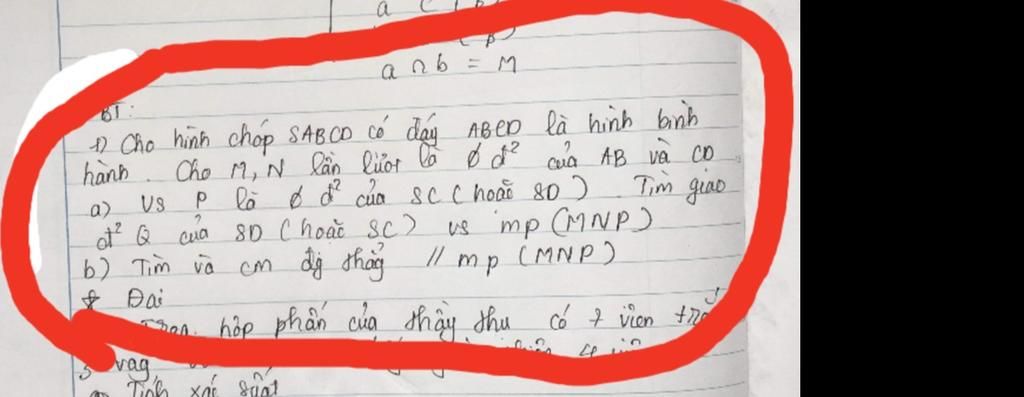 a C
(β)
a ∩ b = M
BT:
1) Cho hình chóp SABCD có đáy ABCD là hình bình
hành. Cho M, N lần lượt là ∅ đ² của AB và CD
a) vs P là ∅ đ² của SC (hoặc SD) Tìm giao
đ² Q của SD (hoặc SC) vs mp (MNP)
b) Tìm và cm đg thẳg // mp (MNP)
* Đại
hộp phấn của thầy thu có 7 viên
vag
Tính xác suất